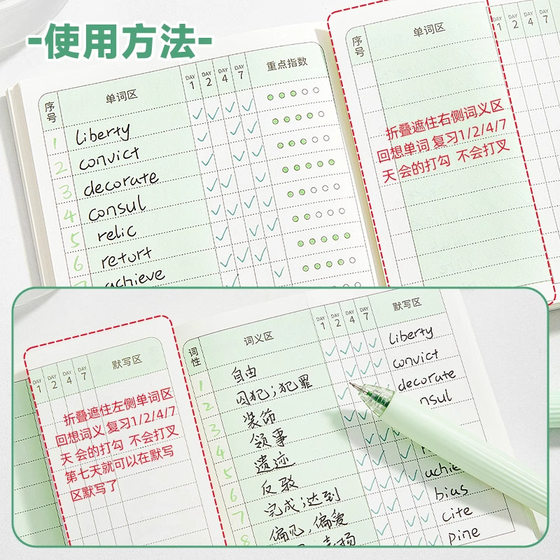 使用方法
序号 单词区 DAY 1 DAY 2 DAY 4 DAY 7 重点指数
1 liberty
2 convict
3 decorate
4 consul
5 relic
6 retort
7 achieve
序号 单词区 DAY 1 DAY 2 DAY 4 DAY
折叠遮住右侧词义区
回想单词 复习1/2/4/7
天 会的打勾 不会打叉
DAY 1 DAY 2 DAY 4 DAY 7 默写区
折叠遮住左侧单词区
回想词义 复习1/2/4/7
天 会的打勾 不会打叉
第七天就可以在默写
区默写了
词性 词义区 DAY 1 DAY 2 DAY 4 DAY 7 默写区
1 自由 liberty
2 囚犯;犯罪 convict
3 装饰 decorate
4 领事 nsul
5 遗迹
6 反驳
7 完成;达到 achie
8 偏见,偏爱 bias
cite
pine